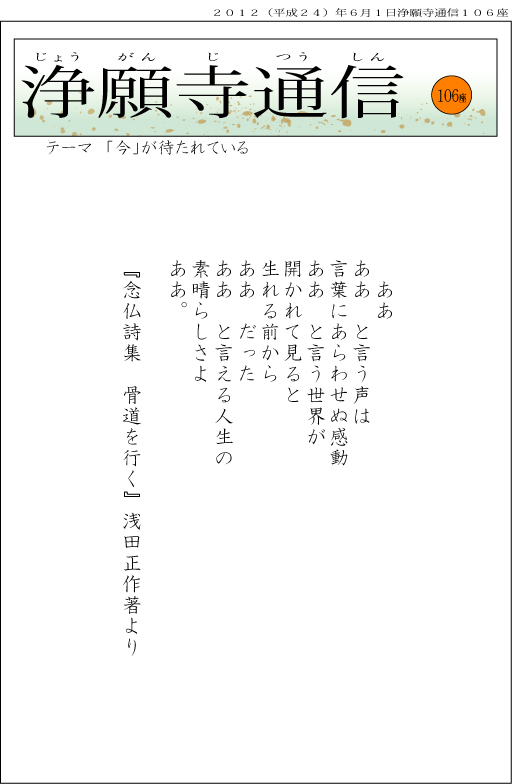 ２０１２（平成２４）年６月１日浄願寺通信１０６座
じょう がん じ つう しん
浄願寺通信
106座
テーマ 「今」が待たれている
ああ
ああ と言う声は
言葉にあらわせぬ感動
ああ と言う世界が
開かれて見ると
生れる前から
ああ だった
ああ と言える人生の
素晴らしさよ
ああ。
『念仏詩集 骨道を行く』浅田正作著より